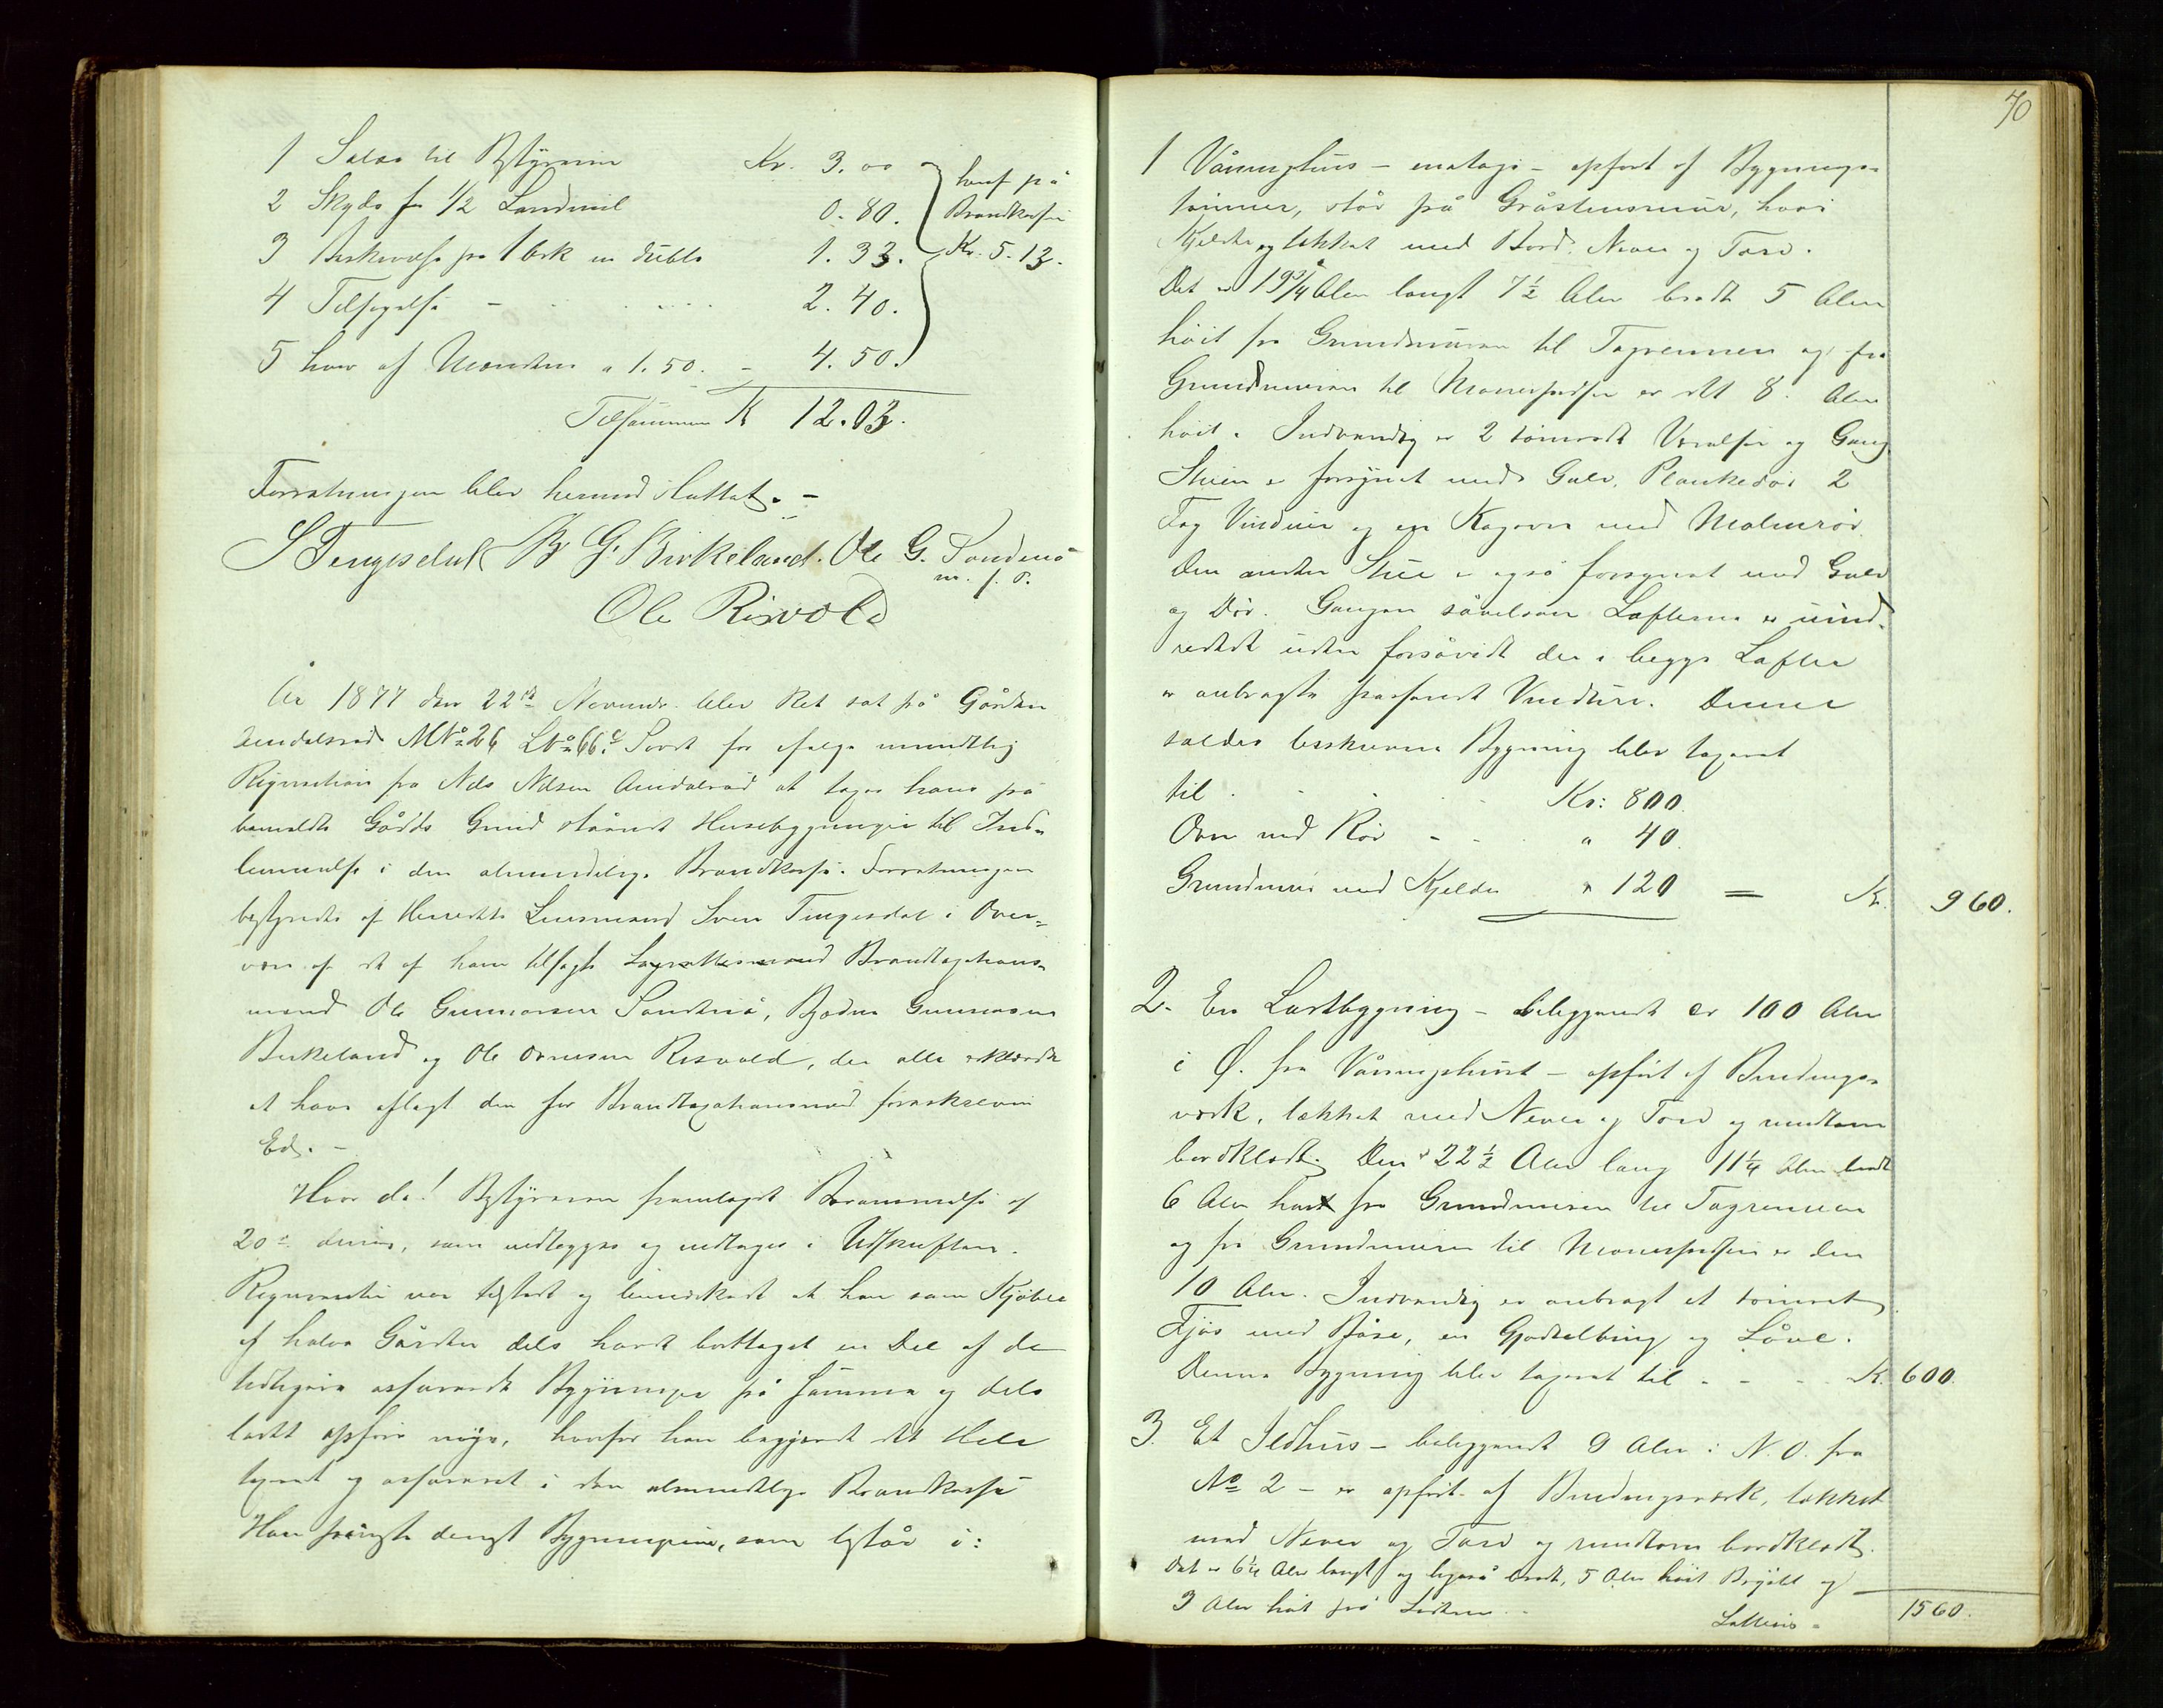 1 Salær til Bestyreren Kr. 3.00
2 Skyds for 1/2 Landmil 0.80.
3 Beskrivelse pr 1 brk in dublo 1.33.
4 Tilsigelse - 2.40.
5 hver af Mændene a 1.50. - 4.50.
heraf på
Brandkassen
Kr. 5.13.
Tilsammen K 12.03.
Forretningen blev hermed sluttet. -
S Tengesdal B G. Birkeland. Ole G. Sandnæs
m. f. P.
Ole Risvold
År 1877 den 22de Novembr. blev Ret sat på Gården
Åmdalsrød MNo 26 LNo 66c Sovst for ifølge mundtlig
Reqvisition fra Nils Nilsen Åmdalsrød at taxere hans på
bemeldte Gårds Grund stående Husebygninger til Ind-
lemmelse i den almindelige Brandkasse. Forretningen
bestyredes af Herredets Lensmand Sven Tengesdal i Over-
vær af de af ham tilsagte Lagrettesmænd Brandtaxations-
mænd Ole Gunnarsen Sandnæs, Bjodne Gunnarsen
Birkeland og Ole Ommsen Risvold, der alle erklærede
at have aflagt den for Brandtaxationsmænd foreskrevne
Ed. -
Hvor da! Bestyreren fremlagde Berammelse af
20de dennes, som vedlægges og indtages i Udskriften.
Reqvirenten var tilstede og bemærkede at han som Kjøber
af halve Gården dels havde borttaget en Del af de
tidligere assurerede Bygninger på samme og dels
ladet opføre nye, hvorfor han begjærede det Hele
taxeret og assureret i den almindelige Brandkasse
Han påviste dernæst Bygningerne, som består i:
70
1 Våningshus - enetages - opført af Bygnings-
tømmer, står på Gråstensmur, hvori
Kjelder og tækket med Bord, Never og Torv.
Det er 19 3/4 Alen langt 7 1/2 Alen bredt 5 Alen
høit fra Grundmuren til Tagrennen og fra
Grundmuren til Mønespidsen er det 8 Alen
høit. Indvendig er 2 tømrede Værelser og Gang
Stuen er forsynet med Gulv, Plankedør 2
Fag Vinduer og en Kogeovn med Malmrør.
Den anden Stue er også forsynet med Gulv
og Dør. Gangen såvelsom Lofterne er uind-
redede uden forsåvidt der i begge Lofter
er anbragte passende Vinduer. Denne
således beskrevne Bygning blev taxeret
til . . . Kr: 800.
Ovn med Rør - - " 40.
Grundmur med Kjelder " 120 = Kr. 960.
2. En Ladebygning - beliggende er 100 Alen
i Ø. fra Våningshuset - opført af Bindings-
værk, tækket med Never og Torv og rundtom
bordklædt. Den er 22 1/2 Alen lang 11 1/4 Alen bred
6 Alen høi fra Grundmuren til Tagrennen
og fra Grundmuren til Mønespidsen er den
10 Alen. Indvendig er anbragt et tømret
Fjøs med Båse, en Gjødselbing og Låve.
Denne Bygning blev taxeret til - - - K. 600.
3. Et Ildhus - beliggende 9 Alen i N.O. fra
No 2 - er opført af Bindingsværk, tækket
med Never og Torv og rundtom bordklædt.
Det er 6 1/4 Alen langt og ligeså bredt, 5 Alen høit og
3 Alen høit på Siderne. -
Latteris - 1560.